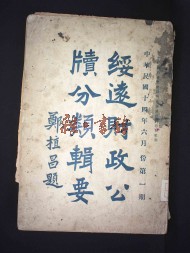 中華民國十四年六月份第一期
綏遠財政公
牘分類輯要
鄭植昌題